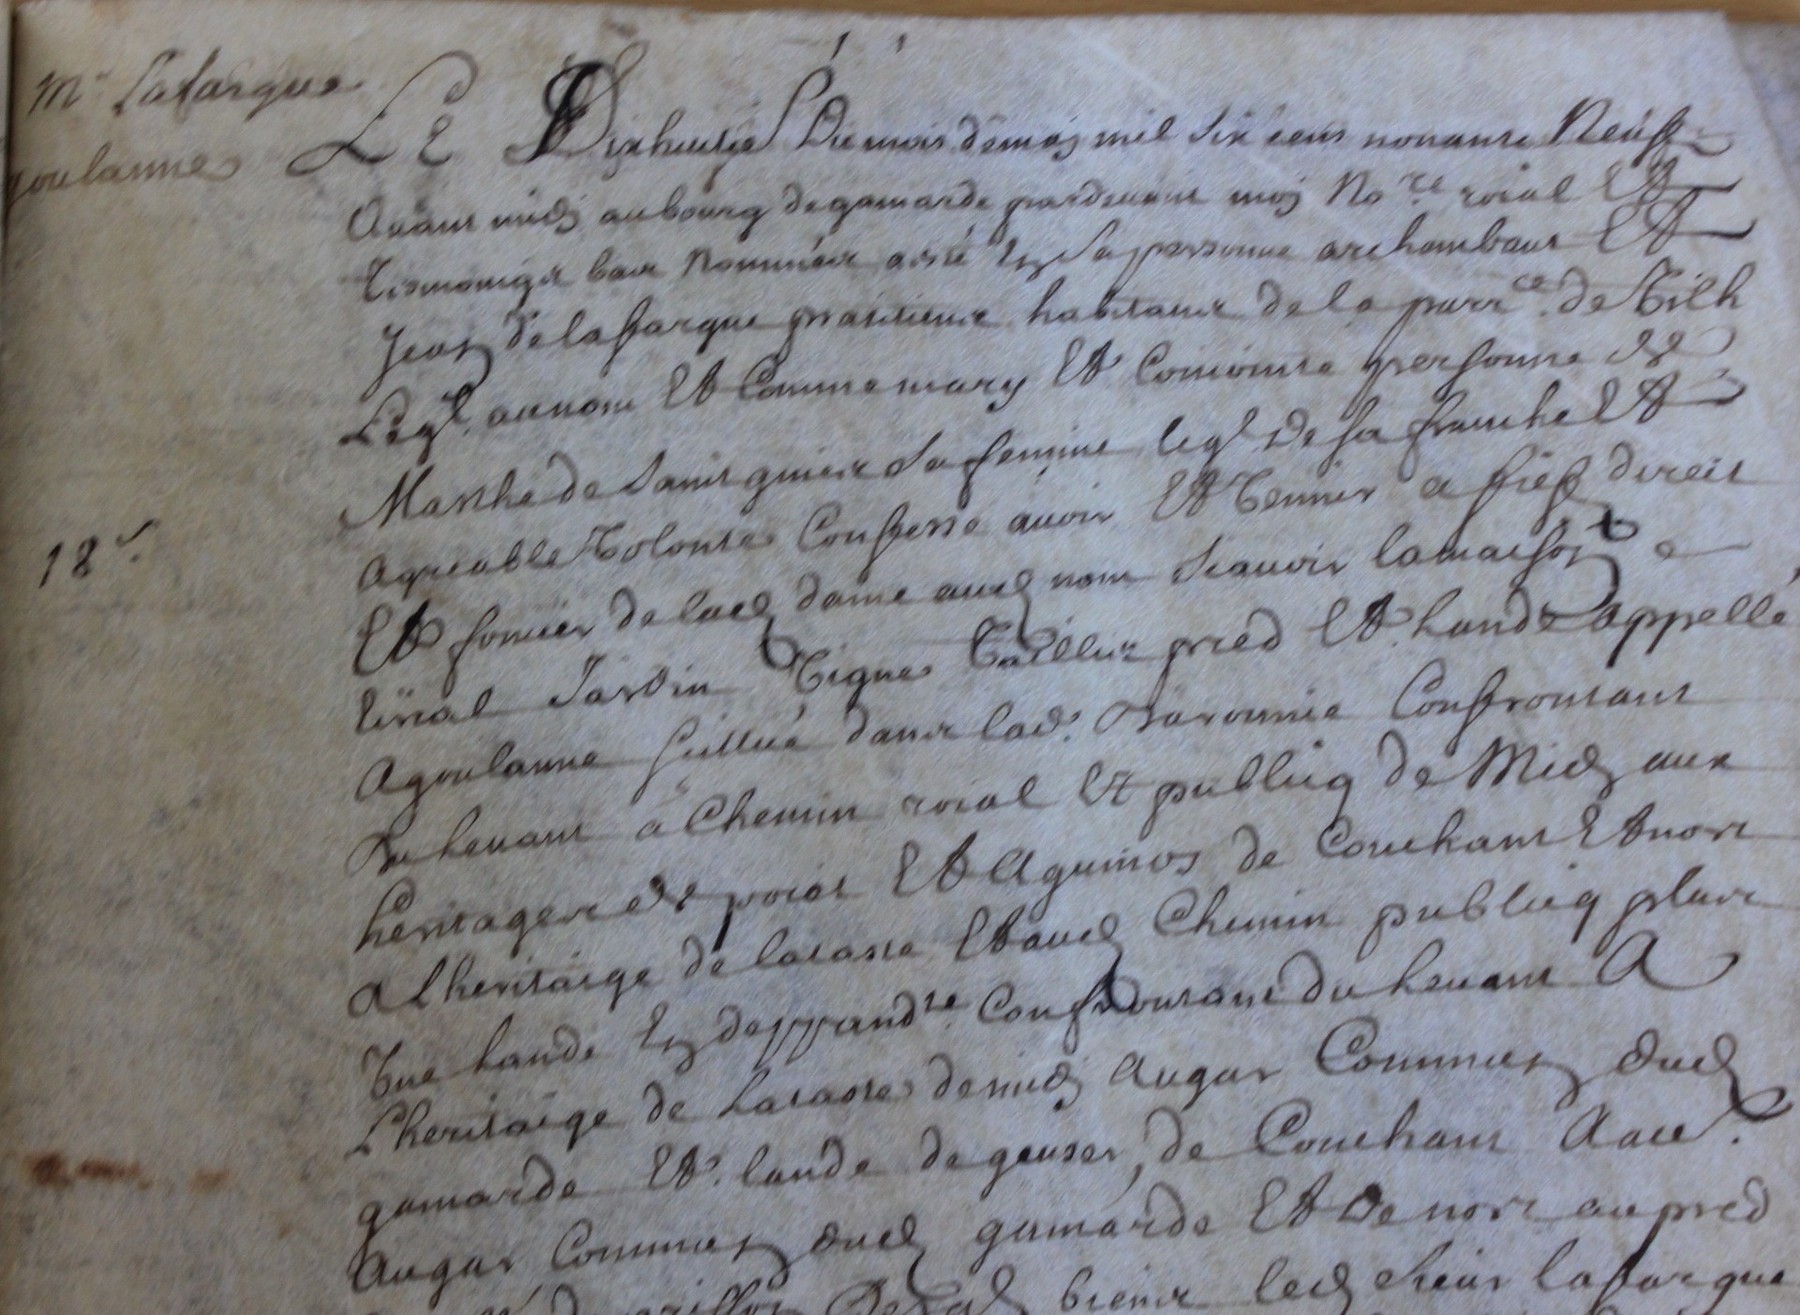 Mr Lafargue
goulanne
Le Dixhuitie Du mois de may mil six cens nonante Neuf
Avant midy au bourg de gamarde pardevant moy No.re roial Et
tesmoingz bas Nommés a esté En sa personne archambaut Et
Jean de lafargue praticien habitant de la parr.ce de Tilh
Leql. au nom Et Comme mary Et Conjointe personne de
Marthe de Saint guiex sa femme leql de sa franche Et
agreable Volonte Confesse avoir Et Tenir a fief direit
Et foncier de lad dame aud nom scavoir la maison
airial Jardin Vigne Taillis pred Et lande appellé
18.
Agoulanne scittué dans lad. Baronnie Confrontant
Du levant a Chemin roial Et publicq de Midy aux
heritages de poiat Et Aguinos de Couchant Et nort
a Lheritaige de lacaste Et aud Chemin publicq plus
Une lande En deppand.te Confrontant du levant A
Lheritaige de Lacaste de midy Augar Commun dud
gamarde Et lande de geuser, de Couchant Aud.
Augar Commun dud gamarde Et de nort au pred
biens led sieur lafargue